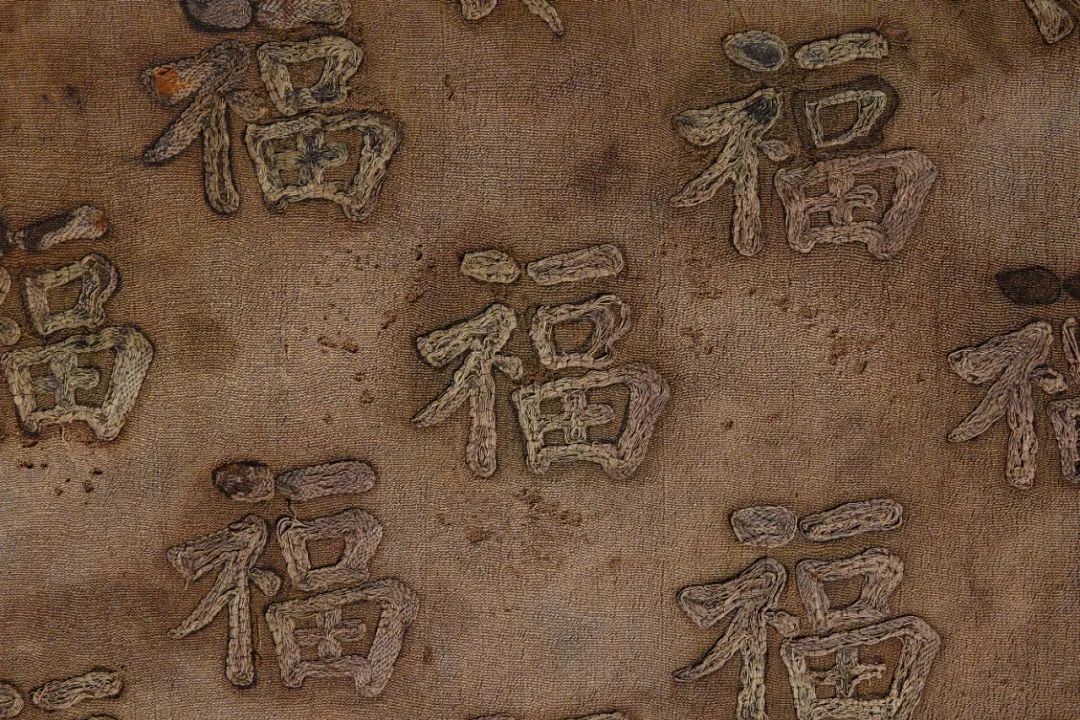 福 福
福 福 福
福 福